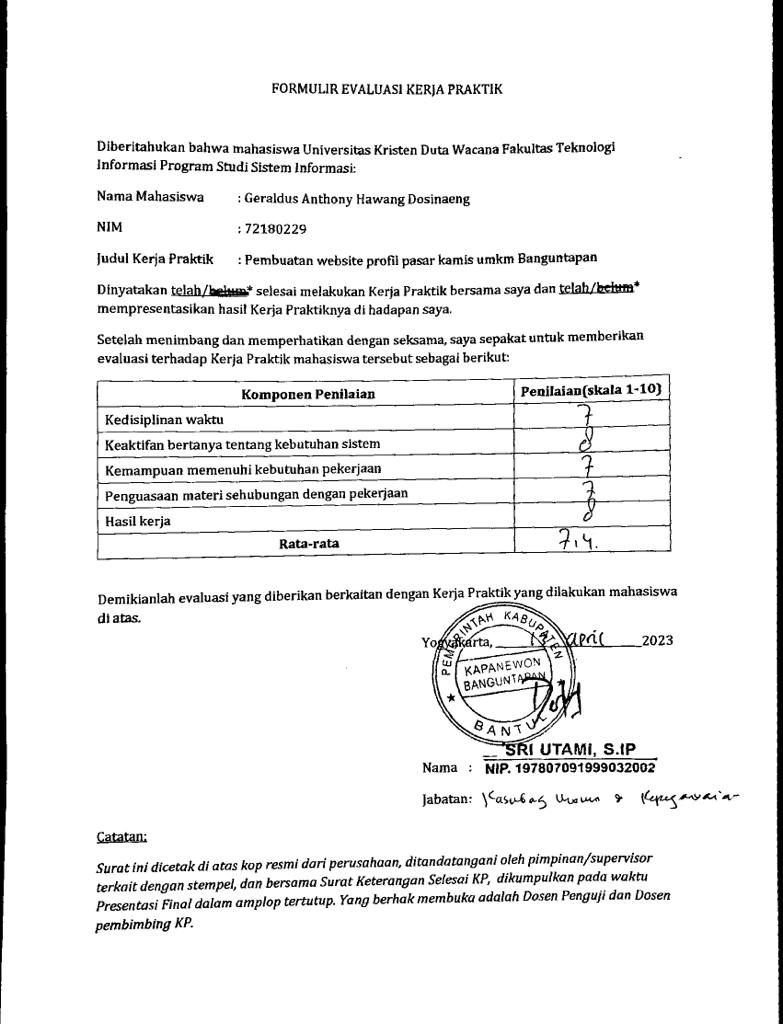 FORMULIR EVALUASI KERJA PRAKTIK
Diberitahukan bahwa mahasiswa Universitas Kristen Duta Wacana Fakultas Teknologi
Informasi Program Studi Sistem Informasi:
Nama Mahasiswa : Geraldus Anthony Hawang Dosinaeng
NIM : 72180229
Judul Kerja Praktik : Pembuatan website profil pasar kamis umkm Banguntapan
Dinyatakan telah/belum* selesai melakukan Kerja Praktik bersama saya dan telah/belum*
mempresentasikan hasil Kerja Praktiknya di hadapan saya.
Setelah menimbang dan memperhatikan dengan seksama, saya sepakat untuk memberikan
evaluasi terhadap Kerja Praktik mahasiswa tersebut sebagai berikut:
Komponen Penilaian Penilaian(skala 1-10)
Kedisiplinan waktu 7
Keaktifan bertanya tentang kebutuhan sistem 8
Kemampuan memenuhi kebutuhan pekerjaan 7
Penguasaan materi sehubungan dengan pekerjaan 7
Hasil kerja 8
Rata-rata 7,4.
Demikianlah evaluasi yang diberikan berkaitan dengan Kerja Praktik yang dilakukan mahasiswa
di atas.
Yogyakarta, April 2023
PEMERINTAH KABUPATEN
KAPANEWON
BANGUNTAPAN
BANTUL
SRI UTAMI, S.IP
Nama : NIP. 197807091999032002
Jabatan: Kasubag Umum & Kepegawaian
Catatan:
Surat ini dicetak di atas kop resmi dari perusahaan, ditandatangani oleh pimpinan/supervisor
terkait dengan stempel, dan bersama Surat Keterangan Selesai KP, dikumpulkan pada waktu
Presentasi Final dalam amplop tertutup. Yang berhak membuka adalah Dosen Penguji dan Dosen
pembimbing KP.